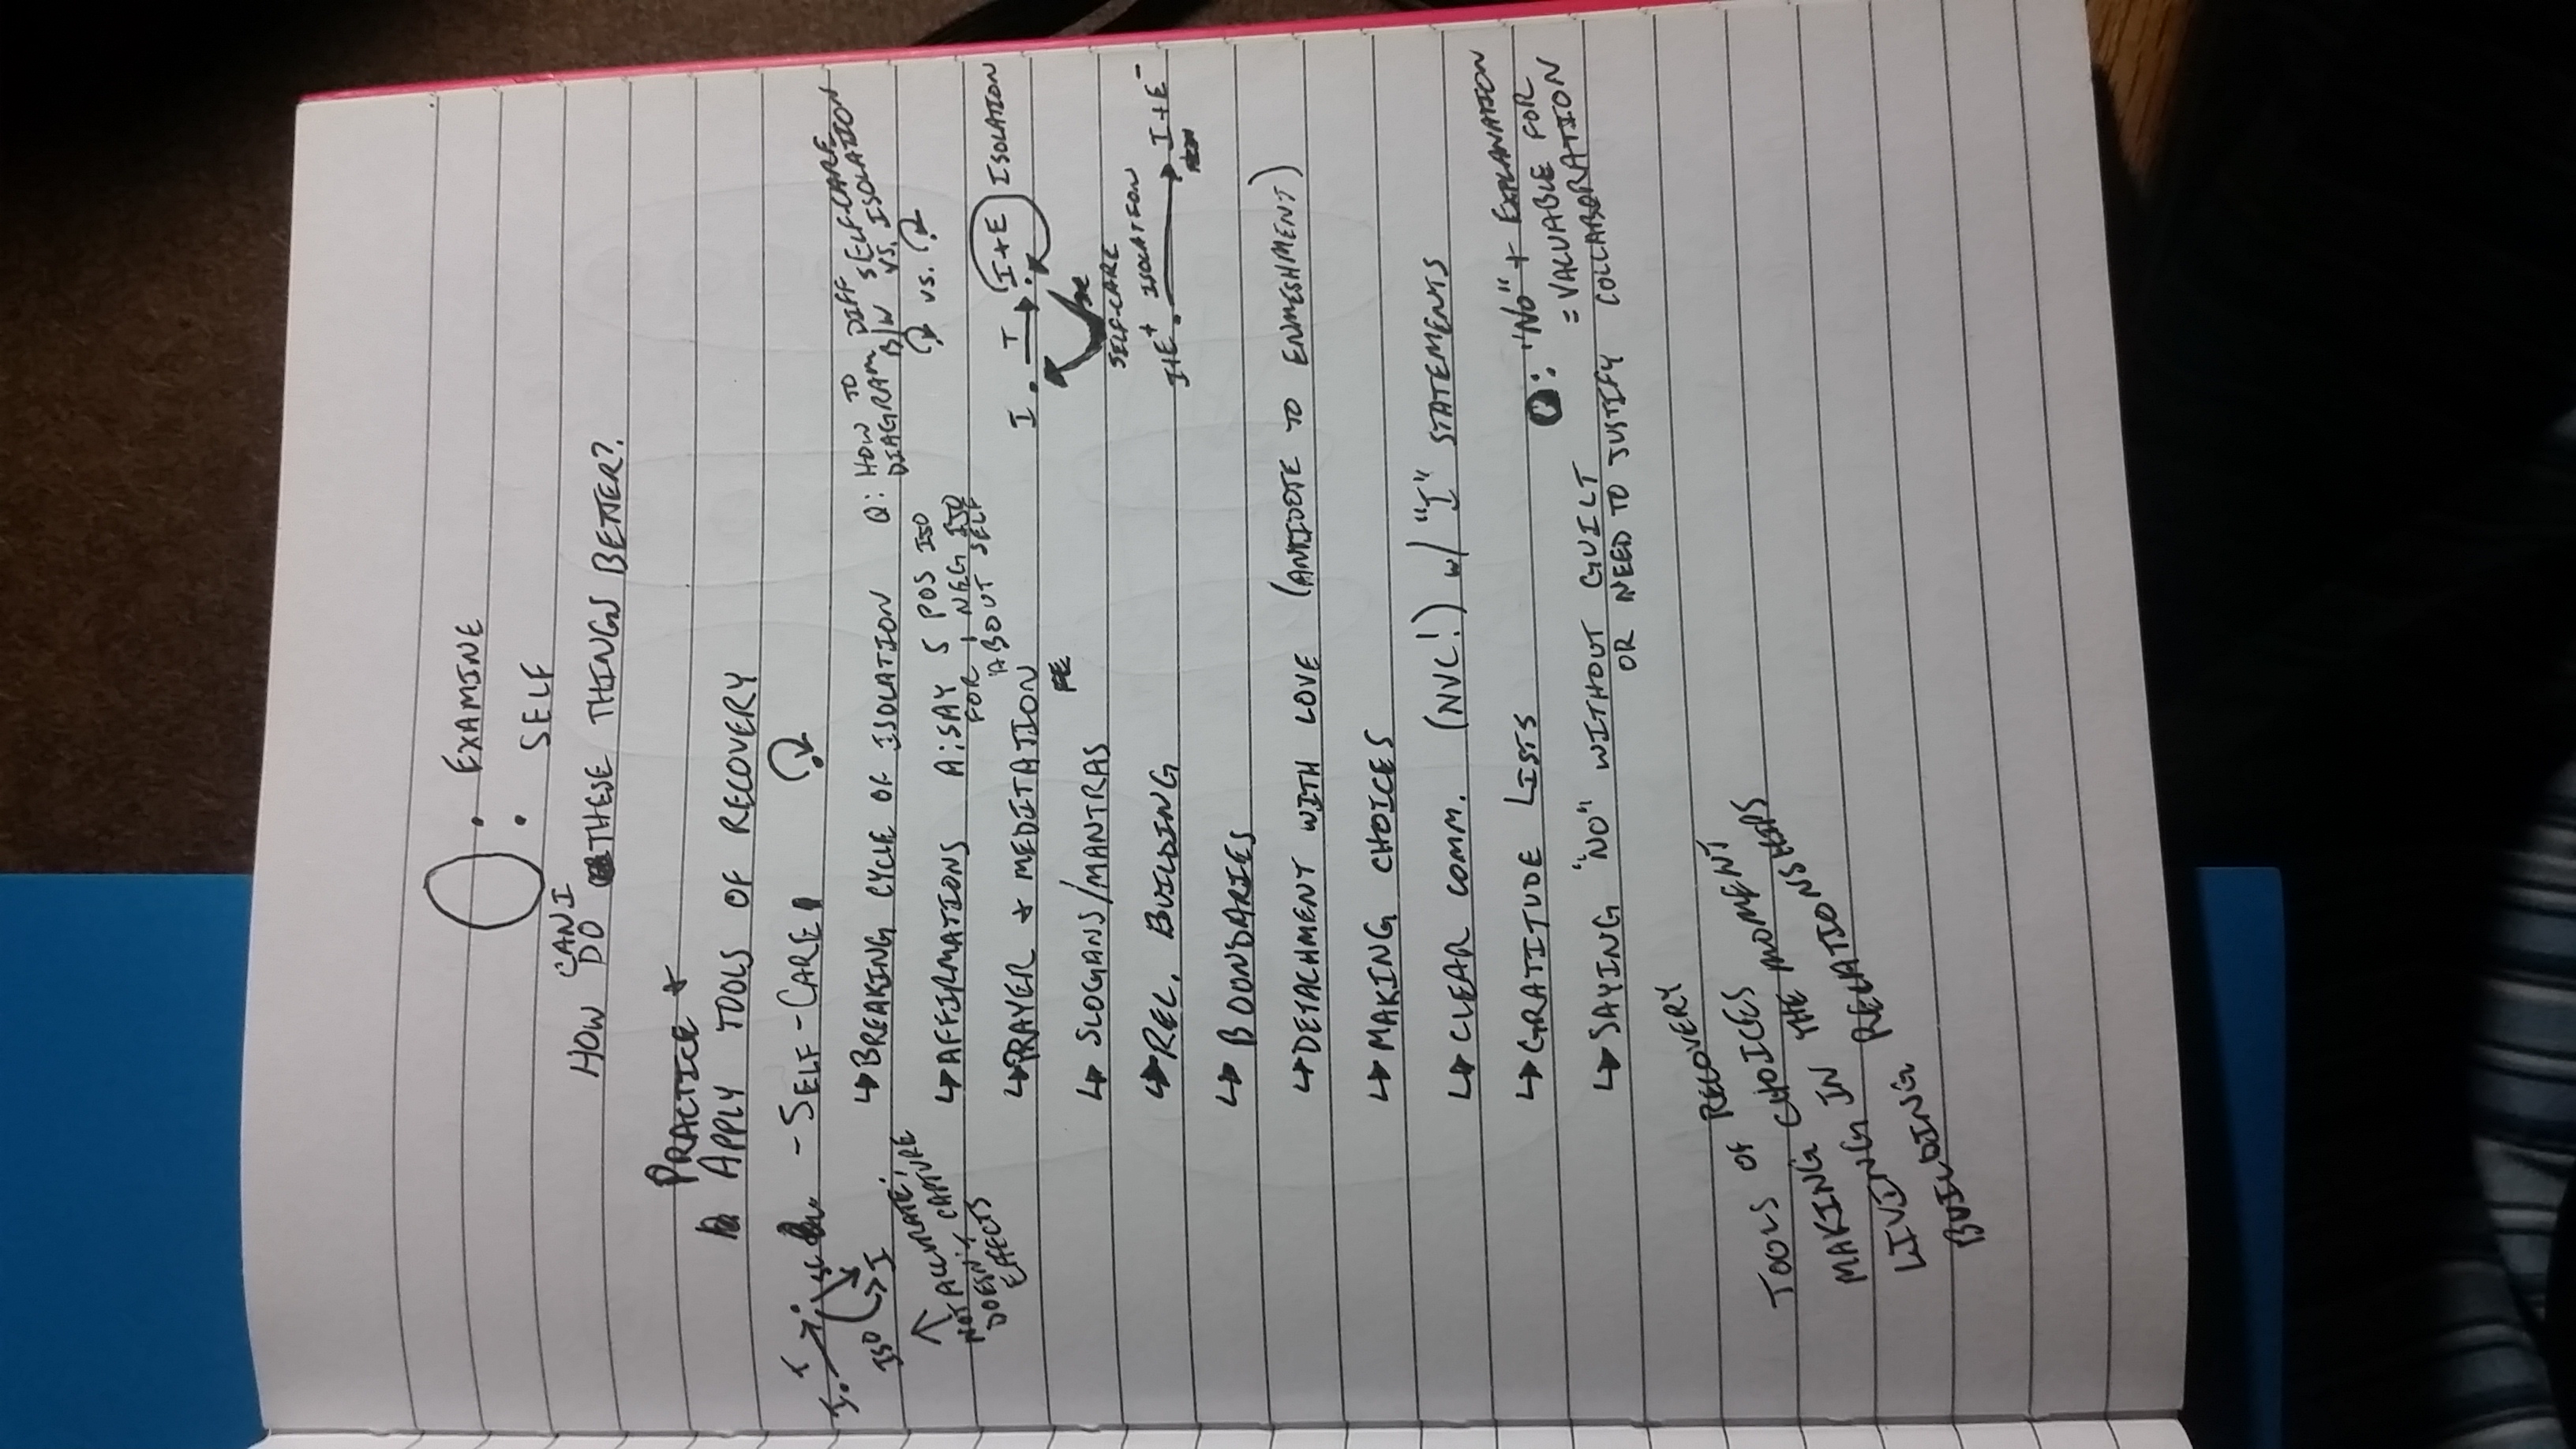 EXAMINE
SELF
CAN I
HOW DO THESE THINGS BETTER?
PRACTICE +
APPLY TOOLS OF RECOVERY
- SELF-CARE
I T SC
ISO I
NOT ACCURATE;
DOESN'T CAPTURE
EFFECTS
↳ BREAKING CYCLE OF ISOLATION
Q: HOW TO
DIAGRAM DIFF
B/W SELF-CARE
VS. ISOLATION
VS.
↳ AFFIRMATIONS
A: SAY 5 POS ISO
FOR 1 NEG ISO
ABOUT SELF
↳ PRAYER + MEDITATION
I T I+E ISOLATION
SELF-CARE
↳ SLOGANS/MANTRAS
↳ REL. BUILDING
I+E+ ISOLATION I+E-
↳ BOUNDARIES
↳ DETACHMENT WITH LOVE (ANTIDOTE TO ENMESHMENT)
↳ MAKING CHOICES
↳ CLEAR COMM. (NVC!) W/ "I" STATEMENTS
↳ GRATITUDE LISTS
↳ SAYING "NO" WITHOUT GUILT
OR NEED TO JUSTIFY
: "NO" + EXPLANATION
= VALUABLE FOR
COLLABORATION
TOOLS OF RECOVERY
MAKING CHOICES
LIVING IN THE MOMENT
BUILDING RELATIONSHIPS